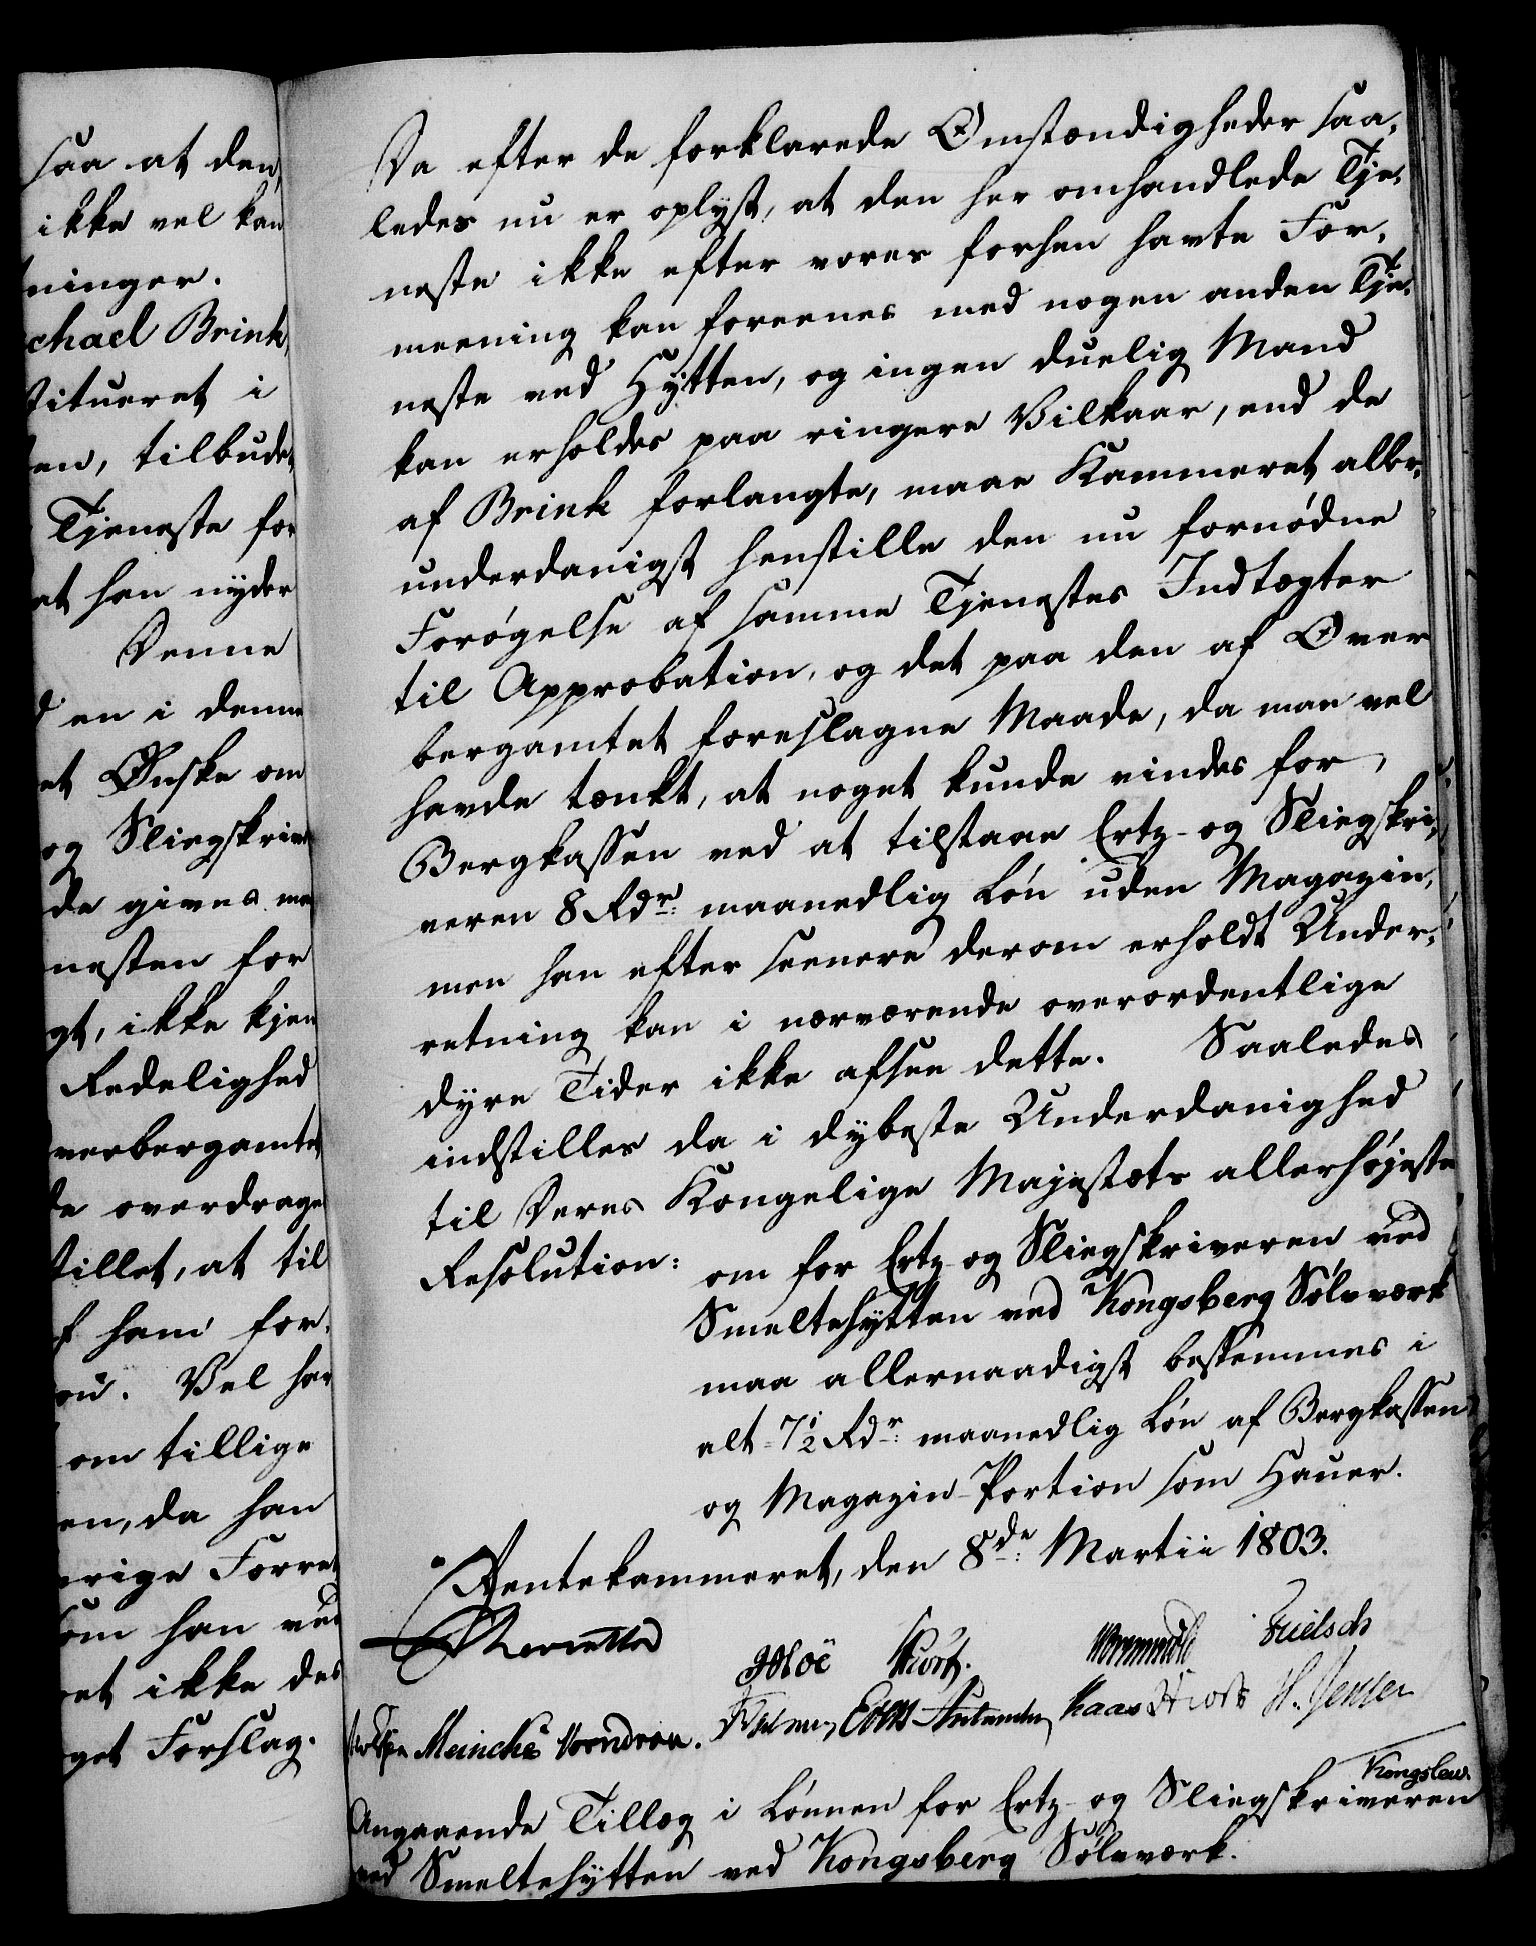 saa at den,
ikke vel kan
ninger.
chael Brink,
stitueret i
en, tilbudet
Tjeneste for
at han nyder
Denne
en i denne
et Ønske om
og Sliegskriv
de gives me
nesten for
gt, ikke kjen
Redelighed
verbergamtet
de overdrage
stillet, at til
f ham for,
Vel har
om tillige
en, da han
vrige Forret
som han ved
et ikke des
get Forslag.
Da efter de forklarede Omstændigheder saa,
ledes nu er oplyst, at den her omhandlede Tje,
neste ikke efter vores forhen havte For,
meening kan foreenes med nogen anden Tje,
neste ved Hytten, og ingen duelig Mand
kan erholdes paa ringere Vilkaar, end de
af Brink forlangte, maae Kammeret aller,
underdanigst henstille den nu fornødne
Forøgelse af samme Tjenestes Indtægter
til Approbation, og det paa den af Over
bergamtet foreslagne Maade, da man vel
havde tænkt, at noget kunde vindes for
Bergkassen ved at tilstaae Ertz- og Sliegskri,
veren 8 Rdr: maanedlig Løn uden Magazin,
men han efter seenere derom erholdt Under,
retning kan i nærværende overordentlige
dyre Tider ikke afsee dette. Saaledes
indstilles da i dybeste Underdanighed
til Deres Kongelige Majestæts allerhøjeste
Resolution: om for Ertz- og Sliegskriveren ved
Smeltehytten ved Kongsberg Sølvværk
maa allernaadigst bestemmes i
alt 7½ Rdr: maanedlig Løn af Bergkassen
og Magazin-Portion som Hauer.
Rentekammeret, den 8de: Martii 1803.
Reventlow
JMoe Wormskiold
Meincke Wendroth. Kaas H. Jensen
Kongslew.
Angaaende Tillæg i Lønnen for Ertz- og Sliegskriveren
ved Smeltehytten ved Kongsberg Sølvværk.